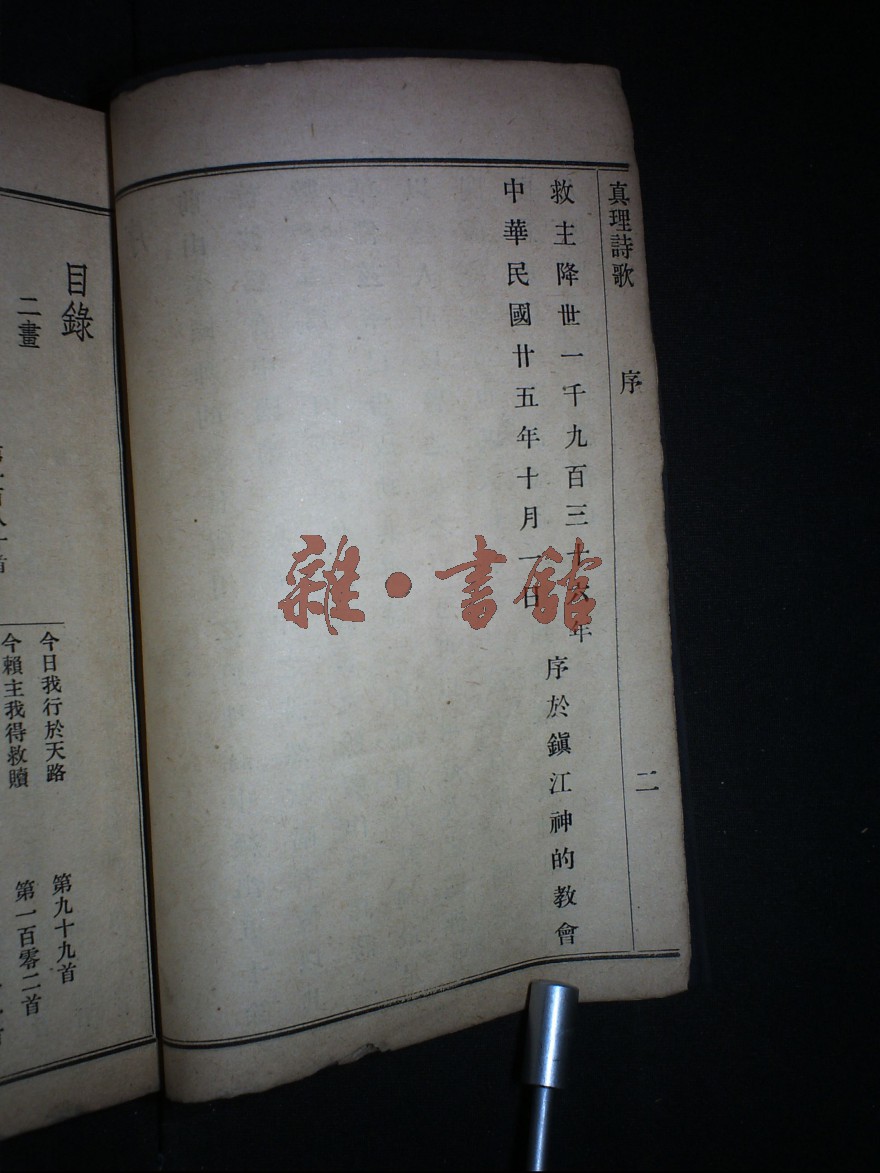 真理詩歌 序 二
救主降世一千九百三十六年
中華民國廿五年十月一日
序於鎭江神的教會
目錄
二畫
今日我行於天路 第九十九首
今賴主我得救贖 第一百零二首
雜·書館